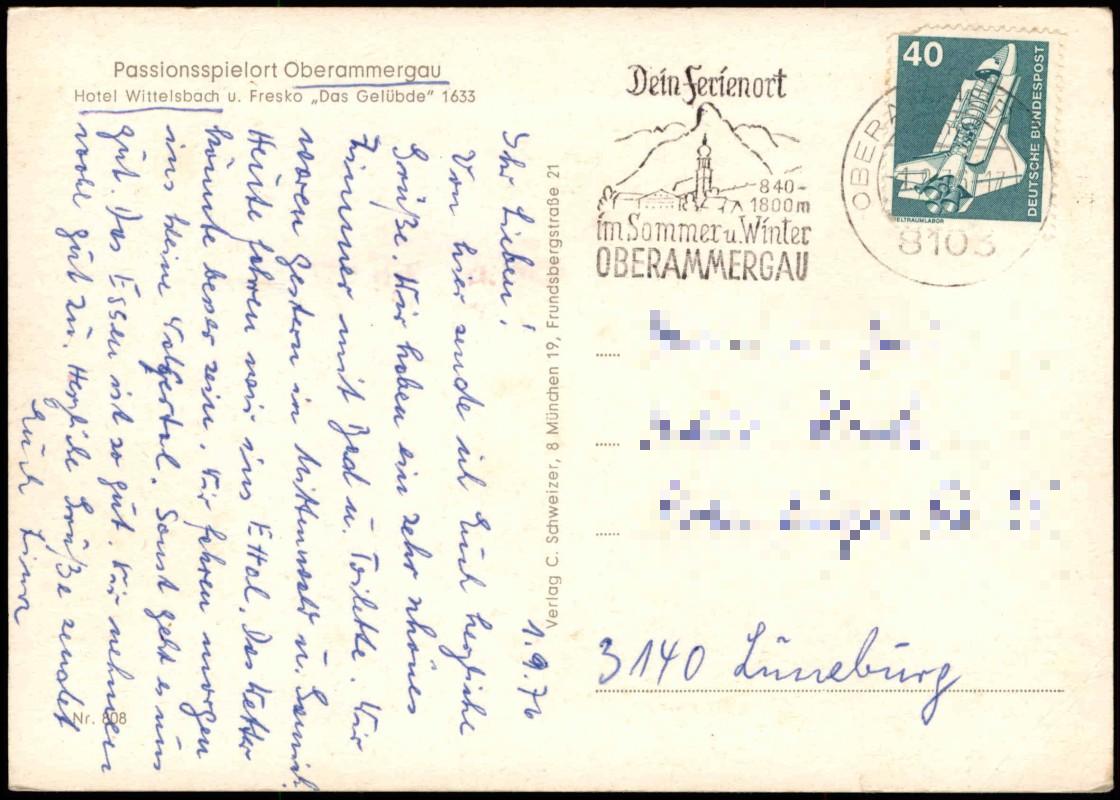 Passionsspielort Oberammergau
Hotel Wittelsbach u. Fresko „Das Gelübde“ 1633
1.9.76
Ihr Lieben!
Von hier sende ich Euch herzliche
Grüße. Wir haben ein sehr schönes
Zimmer mit Bad u. Toilette. Wir
waren gestern in Mittenwald u.
Heute fahren wir ins Ettal. Das Wetter
könnte besser sein. Wir fahren morgen
ins kleine Sonst geht es uns
gut. Das Essen ist so gut. Wir nehmen
wohl gut zu. Herzliche Grüße sendet
Euch
Nr. 808
Verlag C. Schweizer, 8 München 19, Frundsbergstraße 21
Dein Ferienort
840-
1800m
im Sommer u. Winter
OBERAMMERGAU
40
DEUTSCHE BUNDESPOST
8103
3140 Lüneburg